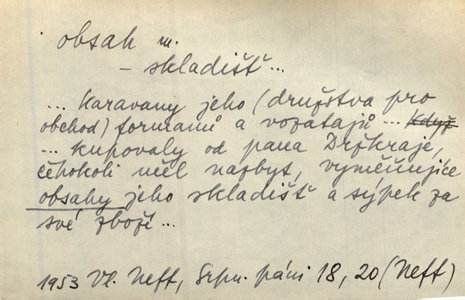 obsah m.
– skladišť...
... Karavany jeho (družstva pro
obchod) formanů a vozatajů ... Když
... kupovaly od pana Držkraje,
čehokoli měl nazbyt, vyměňujíce
obsahy jeho skladišť a sýpek za
své zboží...
1953 Vl. Neff, Srpn. páni 18, 20 (Neff)